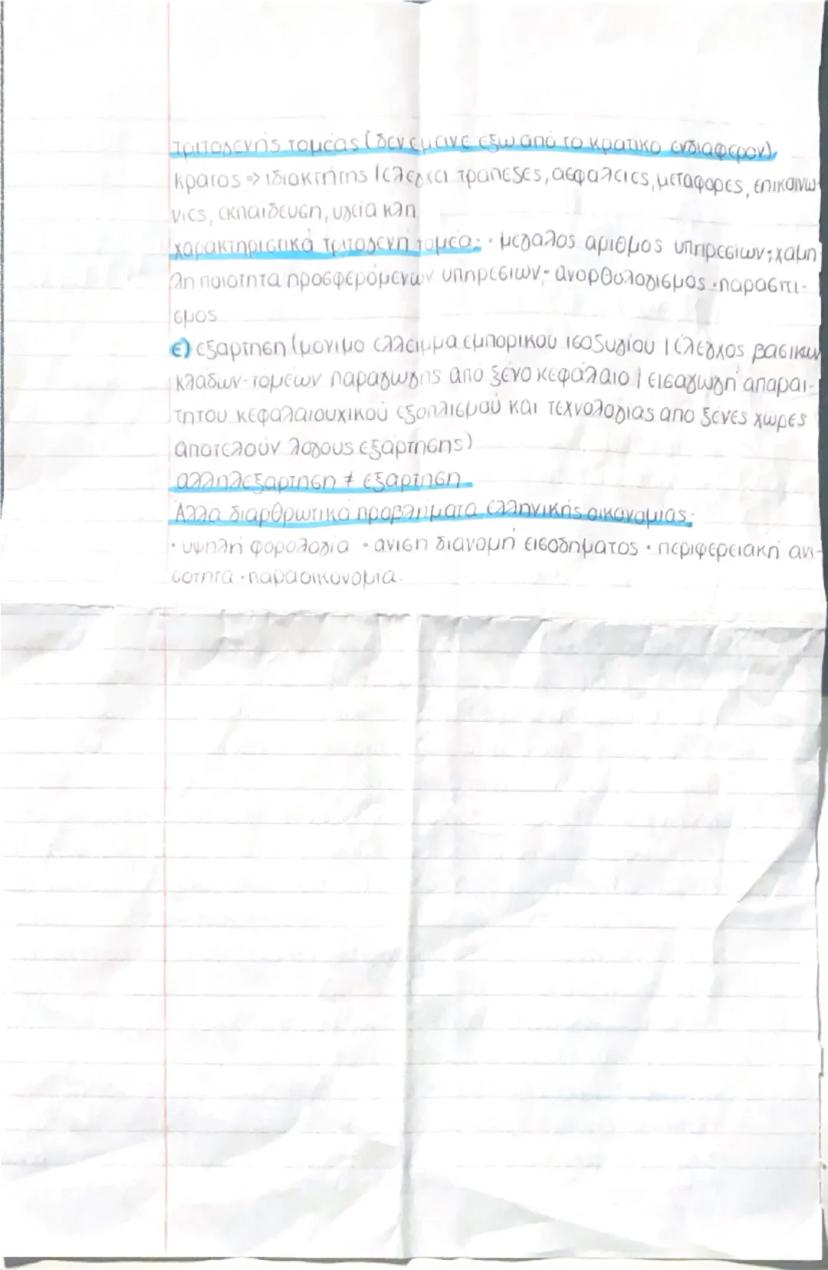 τριτογενής τομέας (δεν έμεινε έξω από το κρατικό ενδιαφέρον)
κράτος => ιδιοκτήτης (ελέγχει τράπεζες, ασφάλειες, μεταφορές, επικοινω-
νίες, εκπαίδευση, υγεία κλπ
χαρακτηριστικά τριτογενή τομέα: · μεγάλος αριθμός υπηρεσιών · χαμη
λή ποιότητα προσφερόμενων υπηρεσιών · ανορθολογισμός · παρασιτι-
σμος
ε) εξάρτηση (μόνιμο έλλειμμα εμπορικού ισοζυγίου | έλεγχος βασικών
κλάδων-τομέων παραγωγής από ξένο κεφάλαιο | εισαγωγή απαραί-
τητου κεφαλαιουχικού εξοπλισμού και τεχνολογίας από ξένες χώρες
αποτελούν λόγους εξάρτησης)
αλληλεξάρτηση ≠ εξάρτηση
Άλλα διαρθρωτικά προβλήματα ελληνικής οικονομίας:
· υψηλή φορολογία · άνιση διανομή εισοδήματος · περιφερειακή ανι-
σότητα · παραοικονομία.